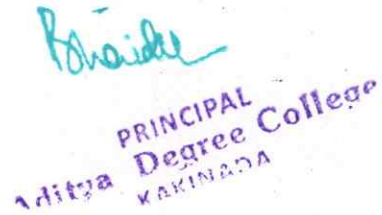 PRINCIPAL
Aditya Degree College
KAKINADA